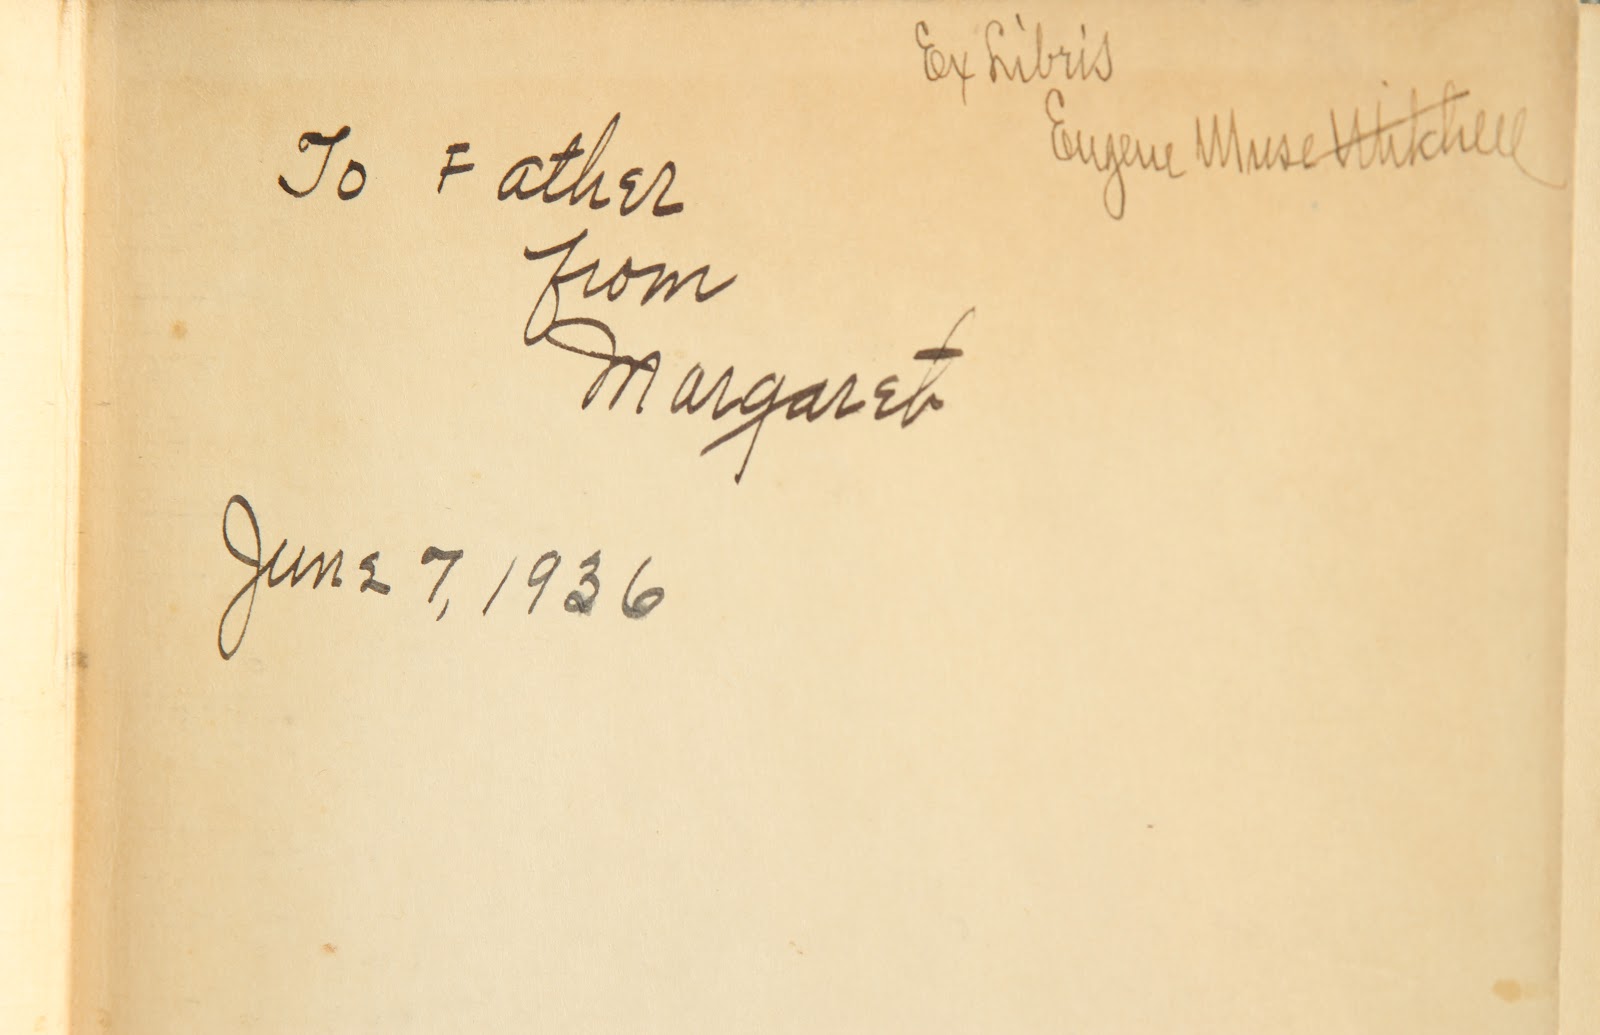 Ex Libris
Eugene Muse Mitchell
To Father
from
Margaret
June 7, 1936